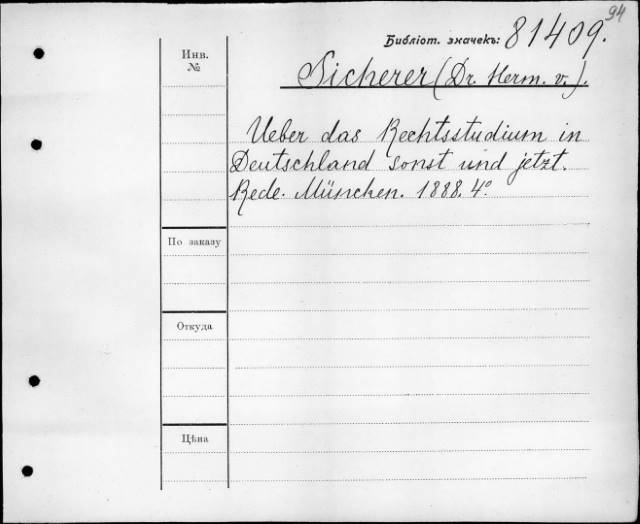 94
Библіот. значекъ: 81409.
Инв.
№
Sicherer (Dr. Herm. v.).
Ueber das Rechtsstudium in
Deutschland sonst und jetzt.
Rede. München. 1888. 4º
По заказу
Откуда
Цѣна